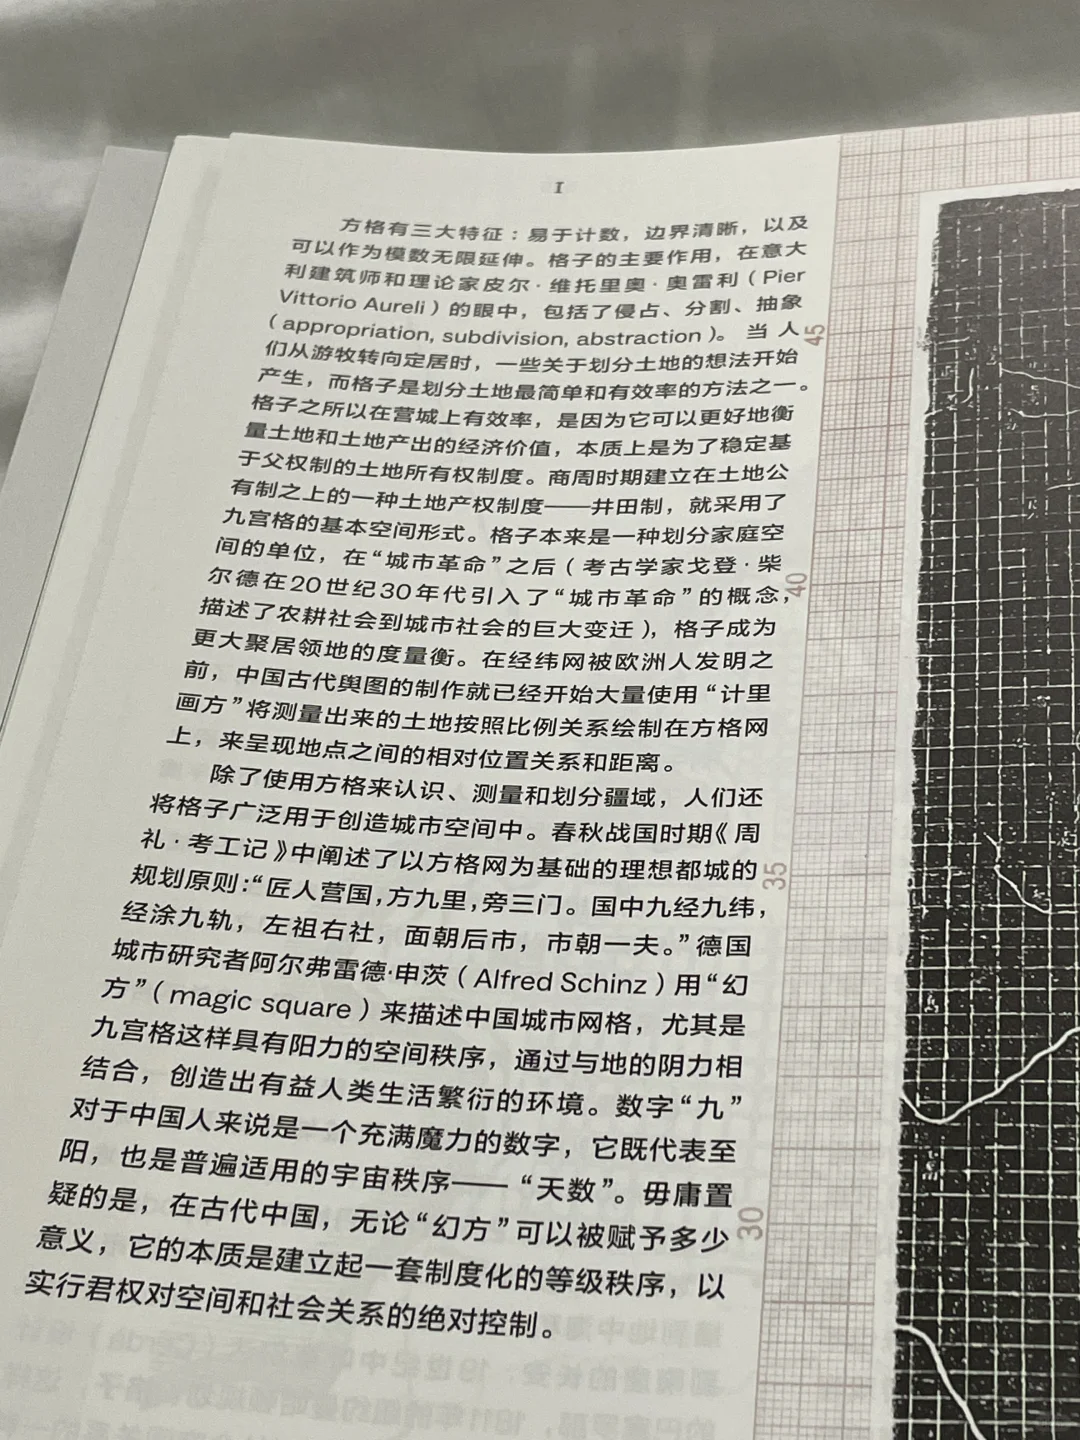 I
方格有三大特征：易于计数，边界清晰，以及
可以作为模数无限延伸。格子的主要作用，在意大
利建筑师和理论家皮尔·维托里奥·奥雷利（Pier
Vittorio Aureli）的眼中，包括了侵占、分割、抽象
（appropriation, subdivision, abstraction）。当人
们从游牧转向定居时，一些关于划分土地的想法开始
产生，而格子是划分土地最简单和有效率的方法之一。
格子之所以在营城上有效率，是因为它可以更好地衡
量土地和土地产出的经济价值，本质上是为了稳定基
于父权制的土地所有权制度。商周时期建立在土地公
有制之上的一种土地产权制度——井田制，就采用了
九宫格的基本空间形式。格子本来是一种划分家庭空
间的单位，在“城市革命”之后（考古学家戈登·柴
尔德在20世纪30年代引入了“城市革命”的概念，
描述了农耕社会到城市社会的巨大变迁），格子成为
更大聚居领地的度量衡。在经纬网被欧洲人发明之
前，中国古代舆图的制作就已经开始大量使用“计里
画方”将测量出来的土地按照比例关系绘制在方格网
上，来呈现地点之间的相对位置关系和距离。
除了使用方格来认识、测量和划分疆域，人们还
将格子广泛用于创造城市空间中。春秋战国时期《周
礼·考工记》中阐述了以方格网为基础的理想都城的
规划原则：“匠人营国，方九里，旁三门。国中九经九纬，
经涂九轨，左祖右社，面朝后市，市朝一夫。”德国
城市研究者阿尔弗雷德·申茨（Alfred Schinz）用“幻
方”（magic square）来描述中国城市网格，尤其是
九宫格这样具有阳力的空间秩序，通过与地的阴力相
结合，创造出有益人类生活繁衍的环境。数字“九”
对于中国人来说是一个充满魔力的数字，它既代表至
阳，也是普遍适用的宇宙秩序——“天数”。毋庸置
疑的是，在古代中国，无论“幻方”可以被赋予多少
意义，它的本质是建立起一套制度化的等级秩序，以
实行君权对空间和社会关系的绝对控制。
45
40
35
30